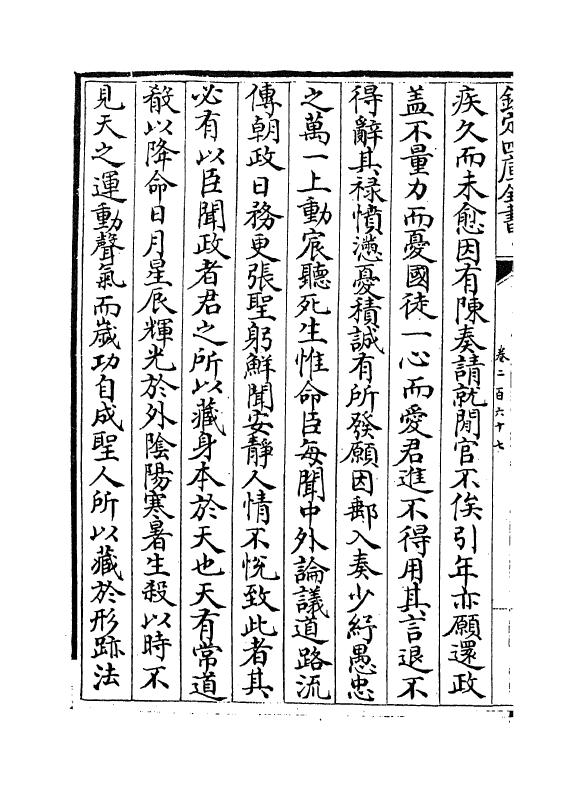 欽定四庫全書
卷二百六十七
疾久而未愈因有陳奏請就閒官不俟引年亦願還政
盖不量力而憂國徒一心而愛君進不得用其言退不
得辭其祿憤懣憂積誠有所發願因郵入奏少紓愚忠
之萬一上動宸聽死生惟命臣每聞中外論議道路流
傳朝政日務更張聖躬鮮聞安靜人情不恱致此者其
必有以臣聞政者君之所以藏身本於天也天有常道
殽以降命日月星辰輝光於外隂陽寒暑生殺以時不
見天之運動聲氣而嵗功自成聖人所以藏於形跡法